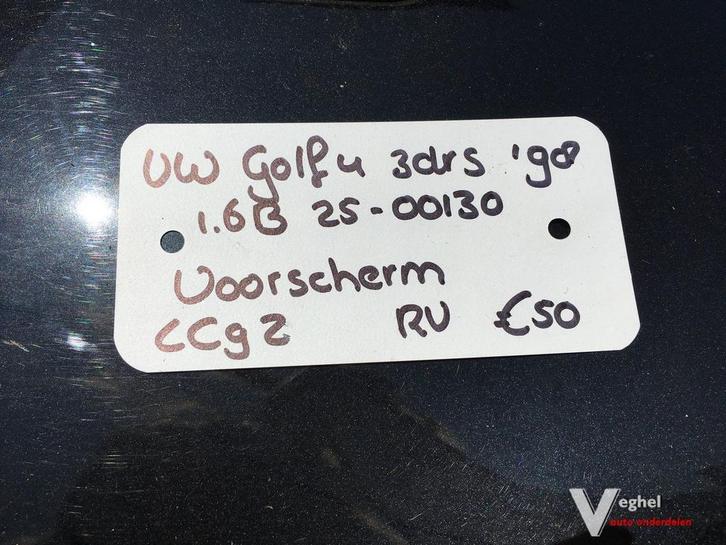 VW Golf 4 3drs '98
1.6B 25-00130
Voorscherm
CC9Z RV €50
Veghel
auto onderdelen